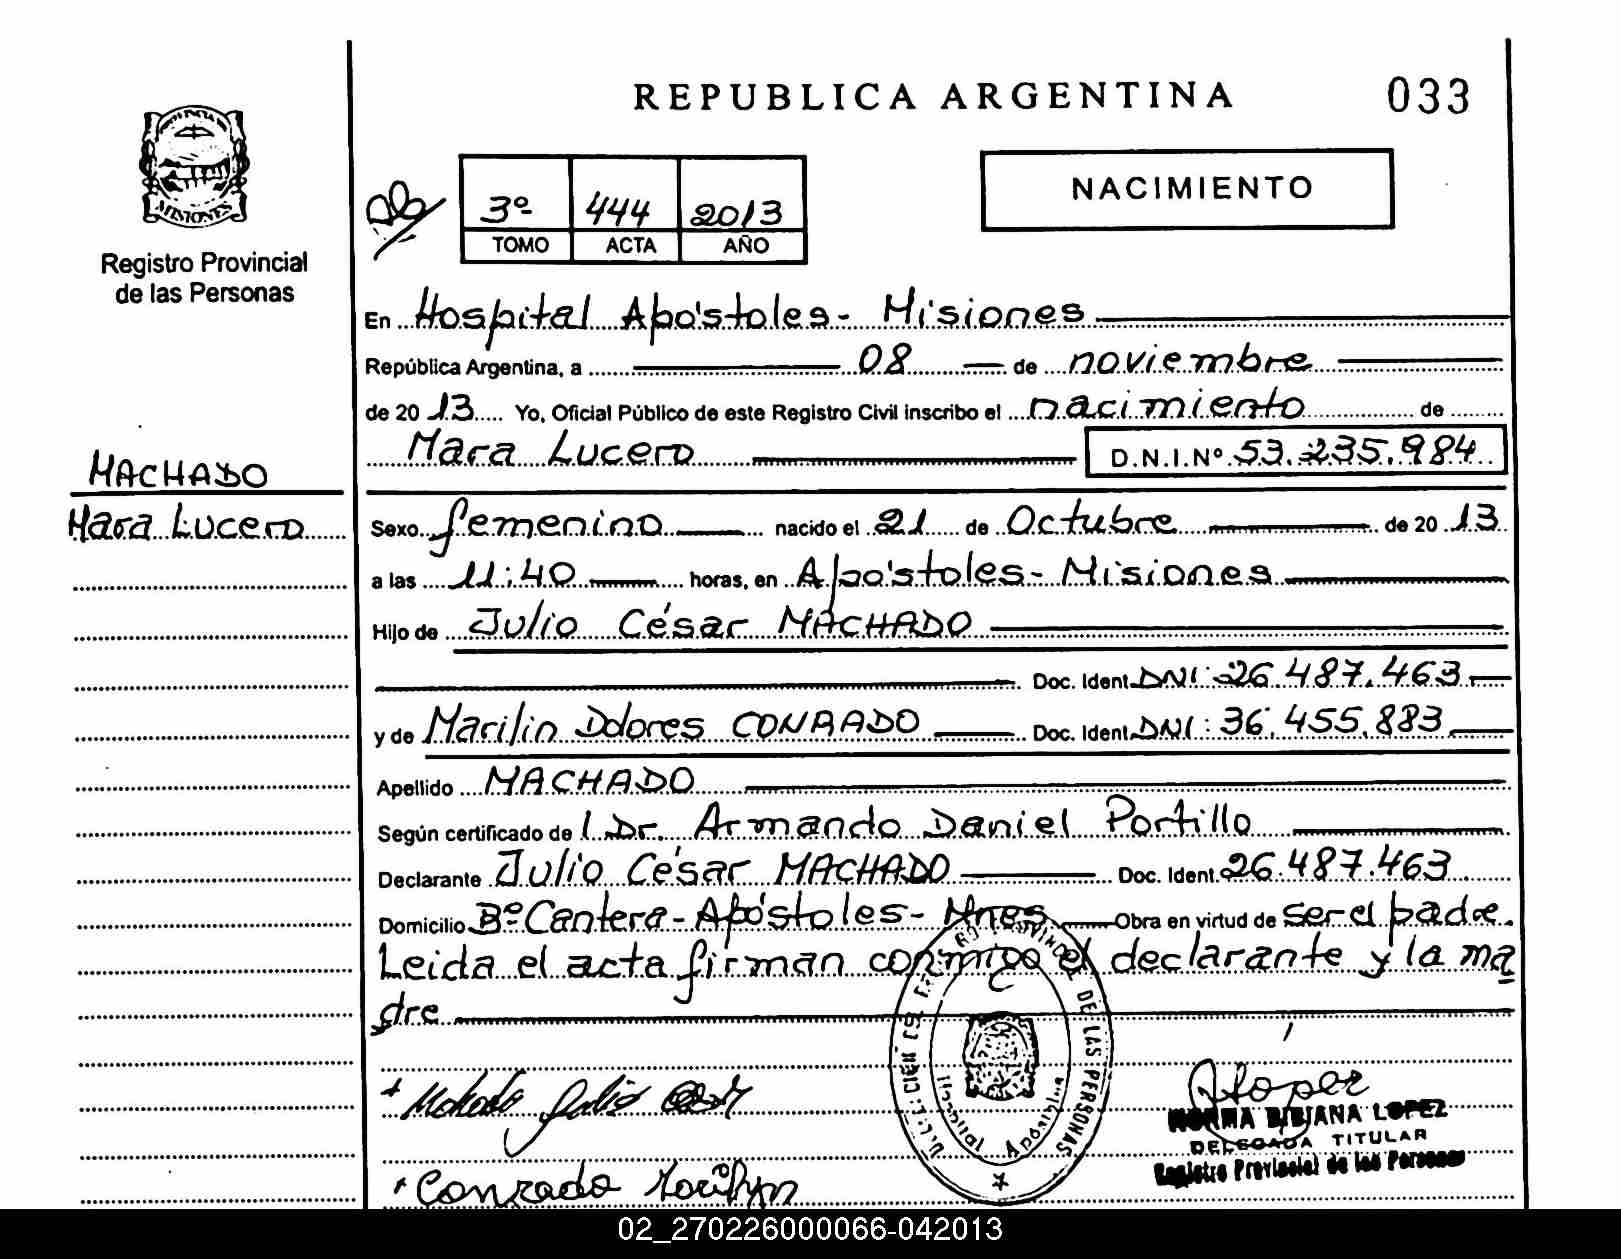 REPUBLICA ARGENTINA 033
MISIONES
Registro Provincial
de las Personas
3º 444 2013
TOMO ACTA AÑO
NACIMIENTO
En Hospital Apóstoles - Misiones
República Argentina, a 08 de noviembre
de 20 13 Yo, Oficial Público de este Registro Civil inscribo el nacimiento de
Mara Lucero D.N.I.Nº 53.235.984
MACHADO
Mara Lucero
Sexo femenino nacido el 21 de Octubre de 20 13
a las 11:40 horas, en Apóstoles - Misiones
Hijo de Julio César MACHADO
Doc. Ident. DNI: 26.487.463
y de Marilin Dolores CONRADO Doc. Ident. DNI: 36.455.883
Apellido MACHADO
Según certificado de l Dr. Armando Daniel Portillo
Declarante Julio César MACHADO Doc. Ident. 26.487.463
Domicilio Bº Cantera - Apóstoles - Mnes Obra en virtud de ser el padre.
Leida el acta firman conmigo el declarante y la ma
dre
DE LAS PERSONAS
Hospital Apóstoles
Machado Julio
Conrado Marilyn
NORMA BIBIANA LOPEZ
DELEGADA TITULAR
Registro Provincial de las Personas
02_270226000066-042013